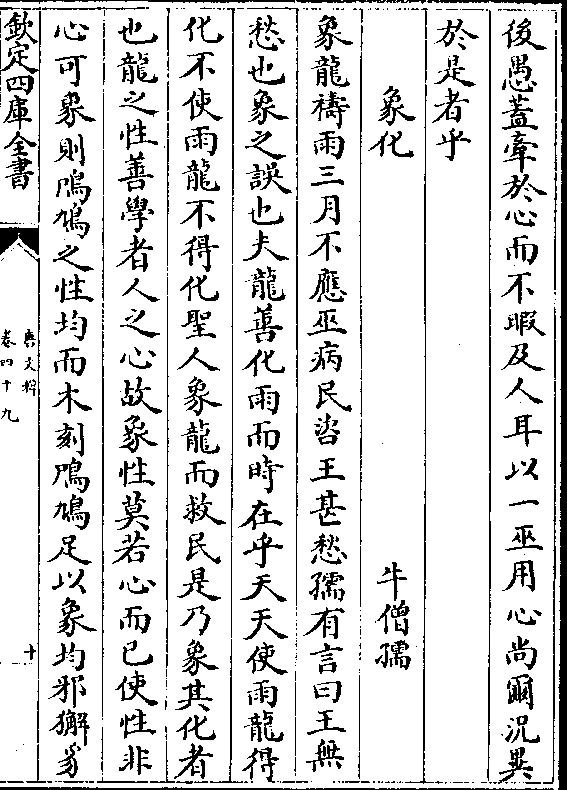 後愚蓋牽於心而不暇及人耳以一巫用心尚爾況異
於是者乎
象化
牛僧孺
象龍禱雨三月不應巫病民咨王甚愁孺有言曰王無
愁也象之誤也夫龍善化雨而時在乎天天使雨龍得
化不使雨龍不得化聖人象龍而救民是乃象其化者
也龍之性善學者人之心故象性莫若心而已使性非
心可象則鳲鳩之性均而木刻鳲鳩足以象均邪獬豸
欽定四庫全書
唐文粹
卷四十九
十